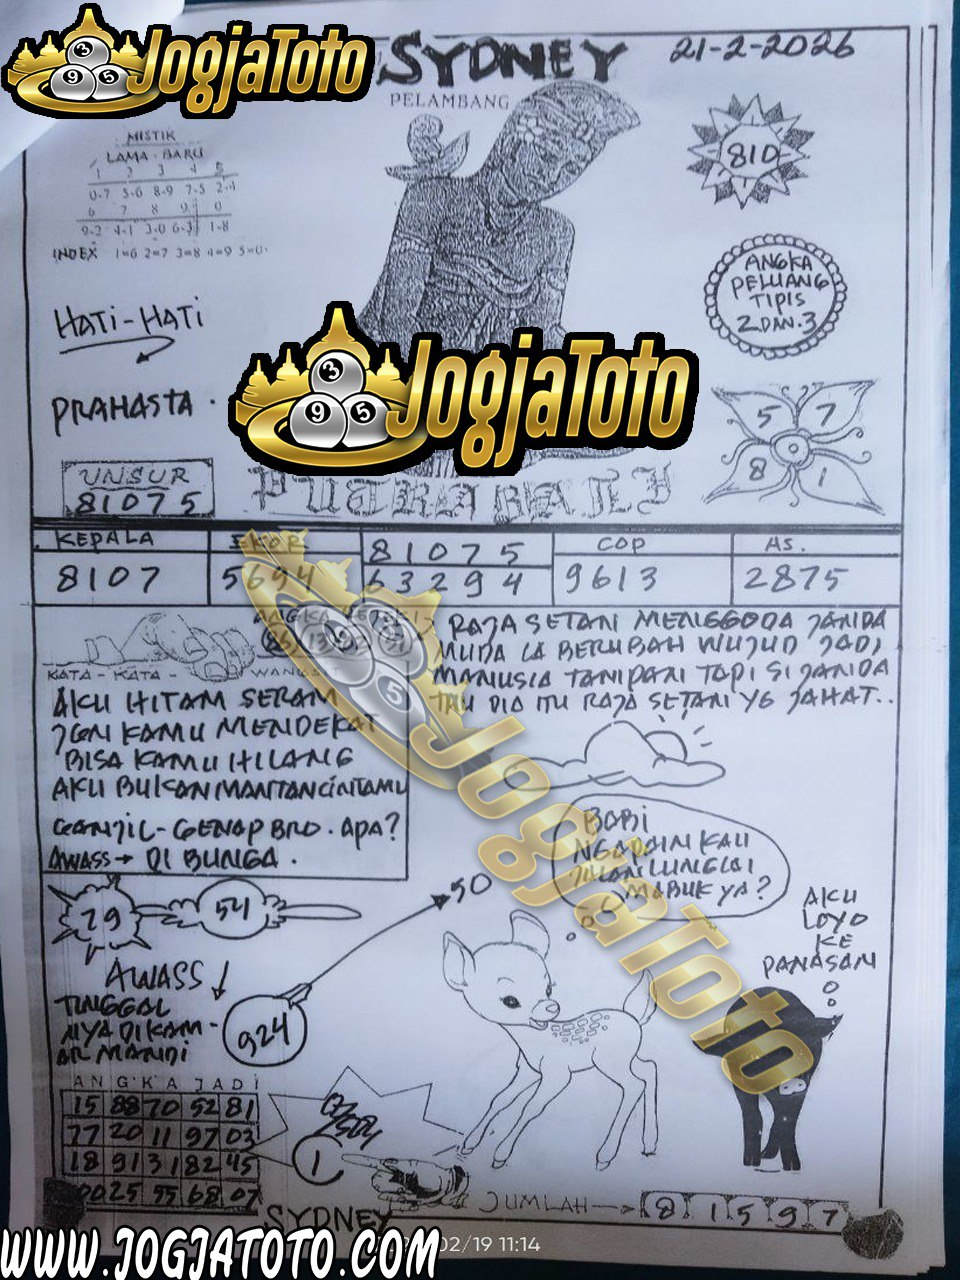 JogjaToto
SYDNEY
21-2-2026
PELAMBANG
MISTIK
LAMA - BARU
1 2 3 4 5
0-7 5-6 8-9 7-5 2-4
6 7 8 9 0
9-2 4-1 3-0 6-3 1-8
INDEX 1=6 2=7 3=8 4=9 5=0
810
ANGKA
PELUANG
TIPIS
2 DAN 3
HATI-HATI
PRAHASTA
JogjaToto
5 7
8 1
UNSUR
81075
PUTRA BALI
KEPALA EKOR 81075 COP AS.
8107 5694 63294 9613 2875
KATA - KATA - WANGSIT
AKU HITAM SERAM
JGN KAMU MENDEKAT
BISA KAMU HILANG
AKU BUKAN MANTAN CINTAMU
GANJIL - GENAP BRO. APA?
AWASS → DI BUNGA.
RAJA SETAN MENGGODA JANDA
MUDA LA BERUBAH WUJUD JADI
MANUSIA TAMPAN TAPI SI JANDA
TAU DIA ITU RAJA SETAN YG JAHAT..
JogjaToto
BABI
NGAPAIN KAU
JALAN LUNGLAI
MABUK YA?
AKU
LOYO
KE
PANASAN
79
54
50
AWASS
TINGGAL
NYA DI KAM -
AR MANDI
924
ANGKA JADI
15 88 70 52 81
77 20 11 97 03
18 91 31 82 45
00 25 55 68 07
1
JUMLAH → 8 1 5 9 7
SYDNEY
02/19 11:14
WWW.JOGJATOTO.COM